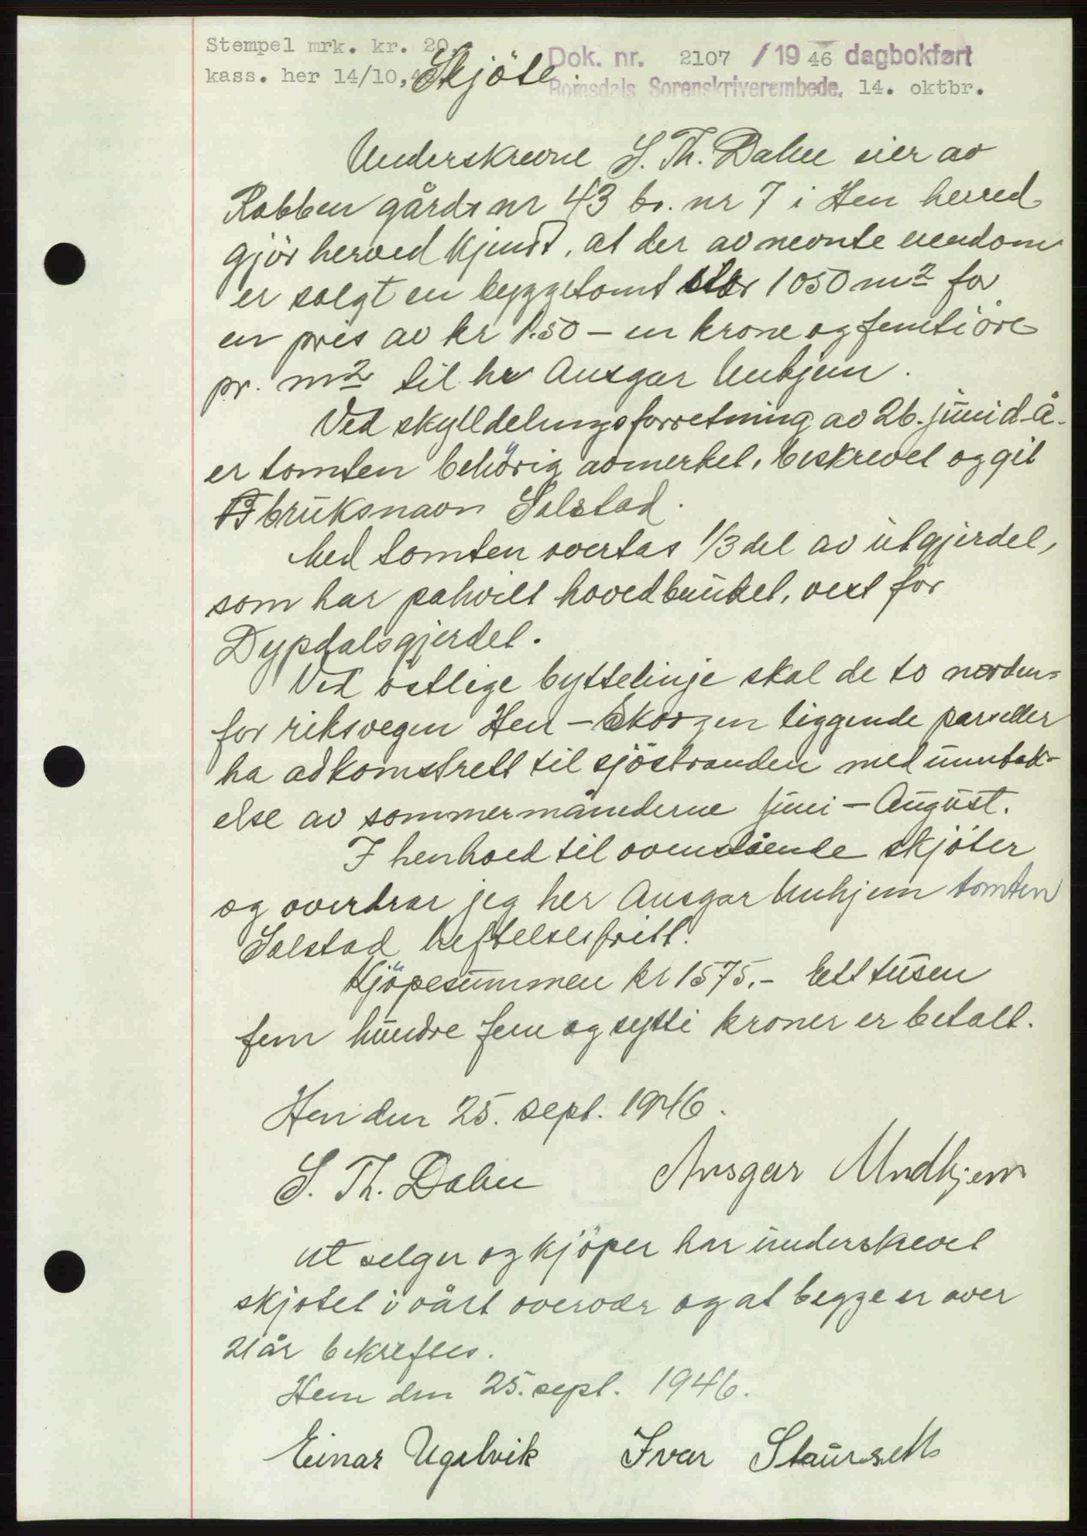 Stempel mrk. kr. 20,
kass. her 14/10,46
Skjöte
Dok. nr. 2107 / 19 46 dagbokført
Romsdals Sorenskriverembede, 14. oktbr.
Underskrevne S. Th. Dahle eier av
Robben gårds nr 43 br. nr 7 i Hen herred
gjör herved kjendt, at der av nevnte eiendom
er solgt en byggetomt stor 1050 m2 for
en pris av kr 1.50 – en krone og femti öre
pr. m2 til hr Ansgar Unhjem.
Ved skylldelingsforretning av 26. juni d.å.
er tomten behörig avmerket, beskrevet og git
bruksnavn Solstad.
Med tomten overtas 1/3 del av utgjerdet,
som har pahvilt hovedbruket, vest for
Dypdalsgjerdet.
Ved östlige byttelinje skal de to norden-
for riksvegen Hen – Skorgen liggende parseller
ha adkomstrett til sjöstranden med unntak-
else av sommermånderne Juni – August.
I henhold til ovenstående skjöter
og overdrar jeg her Ansgar Unhjem tomten
Solstad heftelsesfritt.
Kjöpesummen kr 1575.- Ett tusen
fem hundre fem og sytti kroner er betalt.
Hen den 25. sept. 1946.
S. Th. Dahle Ansgar Undhjem
At selger og kjöper har underskrevet
skjötet i vårt overvær og at begge er over
21 år bekreftes.
Hen den 25. sept. 1946.
Einar Ugelvik Ivar Staurseth